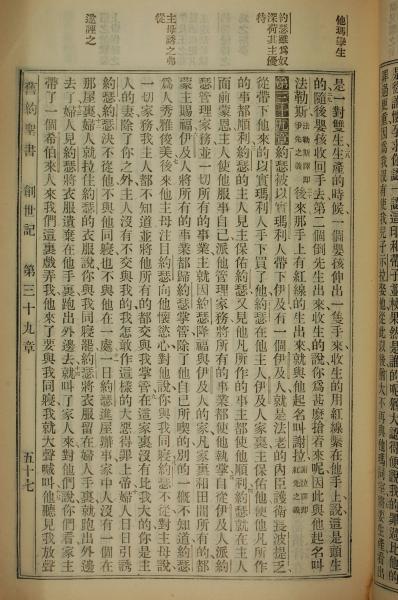 他瑪孿生
約瑟雖為奴
深荷其主優
待
主母誘之弗
從
遂誣之
是一對雙生生產的時候一個嬰孩伸出一隻手來收生的用紅線繫在他手上說這是頭生
的隨後嬰孩收回手去第二個倒先生出來收生的說你為甚麼搶着來呢因此與他起名叫
法勒斯法勒斯譯即爭先之義後來那手上有紅線的生出來就與他起名叫謝拉謝拉譯即紅光之義
第三十九章約瑟被以實瑪利人帶下伊及有一個伊及人就是法老的內臣護衛長波提乏
從帶下他來的以實瑪利人手下買了他約瑟在他主人伊及人家裏主保佑他使他凡所作
的事都順利約瑟的主人見主保佑約瑟又見他凡所作的事主都使他順利約瑟就在主人
面前蒙恩主人使他服事自己派他管理家務將所有的事業都使他執掌自從伊及人派約
瑟管理家務並一切所有的事業主就因約瑟降福與伊及人的家凡家裏和田間所有的都
蒙主賜福伊及人將所有的事業都歸約瑟掌管除了他自己所喫的別的一概不知道約瑟
為人秀雅俊美後來他主母注目約瑟向他懷慾心對他說你與我同寢約瑟不從對主母說
一切家務我主人都不知道並將他所有的都交與我掌管在這家裏沒有比我大的你是主
人的妻除了你之外主人沒有不交與我的我怎敢作這樣的大惡得罪上帝婦人日日引誘
約瑟約瑟決不從他不與他同寢也不與他在一處一日約瑟進屋辦事家中人沒有一個在
那屋裏婦人就拉住約瑟的衣服說你與我同寢罷約瑟將衣服留在婦人手裏就跑出外邊
去了婦人見約瑟將衣服遺棄在他手裏跑出外邊去就叫了家人來對他們說你們看家主
帶了一個希伯來人來我們這裏戲弄我他來了要與我同寢我就大聲喊叫他聽見我放聲
舊約聖書 創世記 第三十九章 五十七